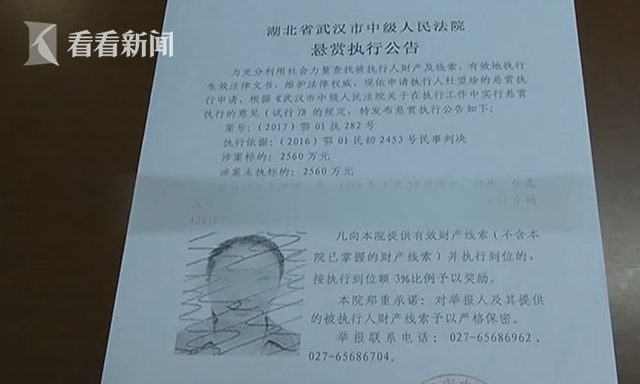 看看新闻
湖北省武汉市中级人民法院
悬赏执行公告
为充分利用社会力量查找被执行人财产及线索,有效地执行
生效法律文书,维护法律权威,现依申请执行人杜望珍的悬赏执
行申请,根据《武汉市中级人民法院关于在执行工作中实行悬赏
执行的意见(试行)》的规定,特发布悬赏执行公告如下:
案号:(2017)鄂 01 执 282 号
执行依据:(2016)鄂 01 民初 2453 号民事判决
涉案标的:2560 万元
涉案未执标的:2560 万元
凡向本院提供有效财产线索(不含本
院已掌握的财产线索)并执行到位的,
按执行到位额 3%比例予以奖励。
本院郑重承诺:对举报人及其提供
的被执行人财产线索予以严格保密。
举报联系电话:027-65686962、
027-65686704。